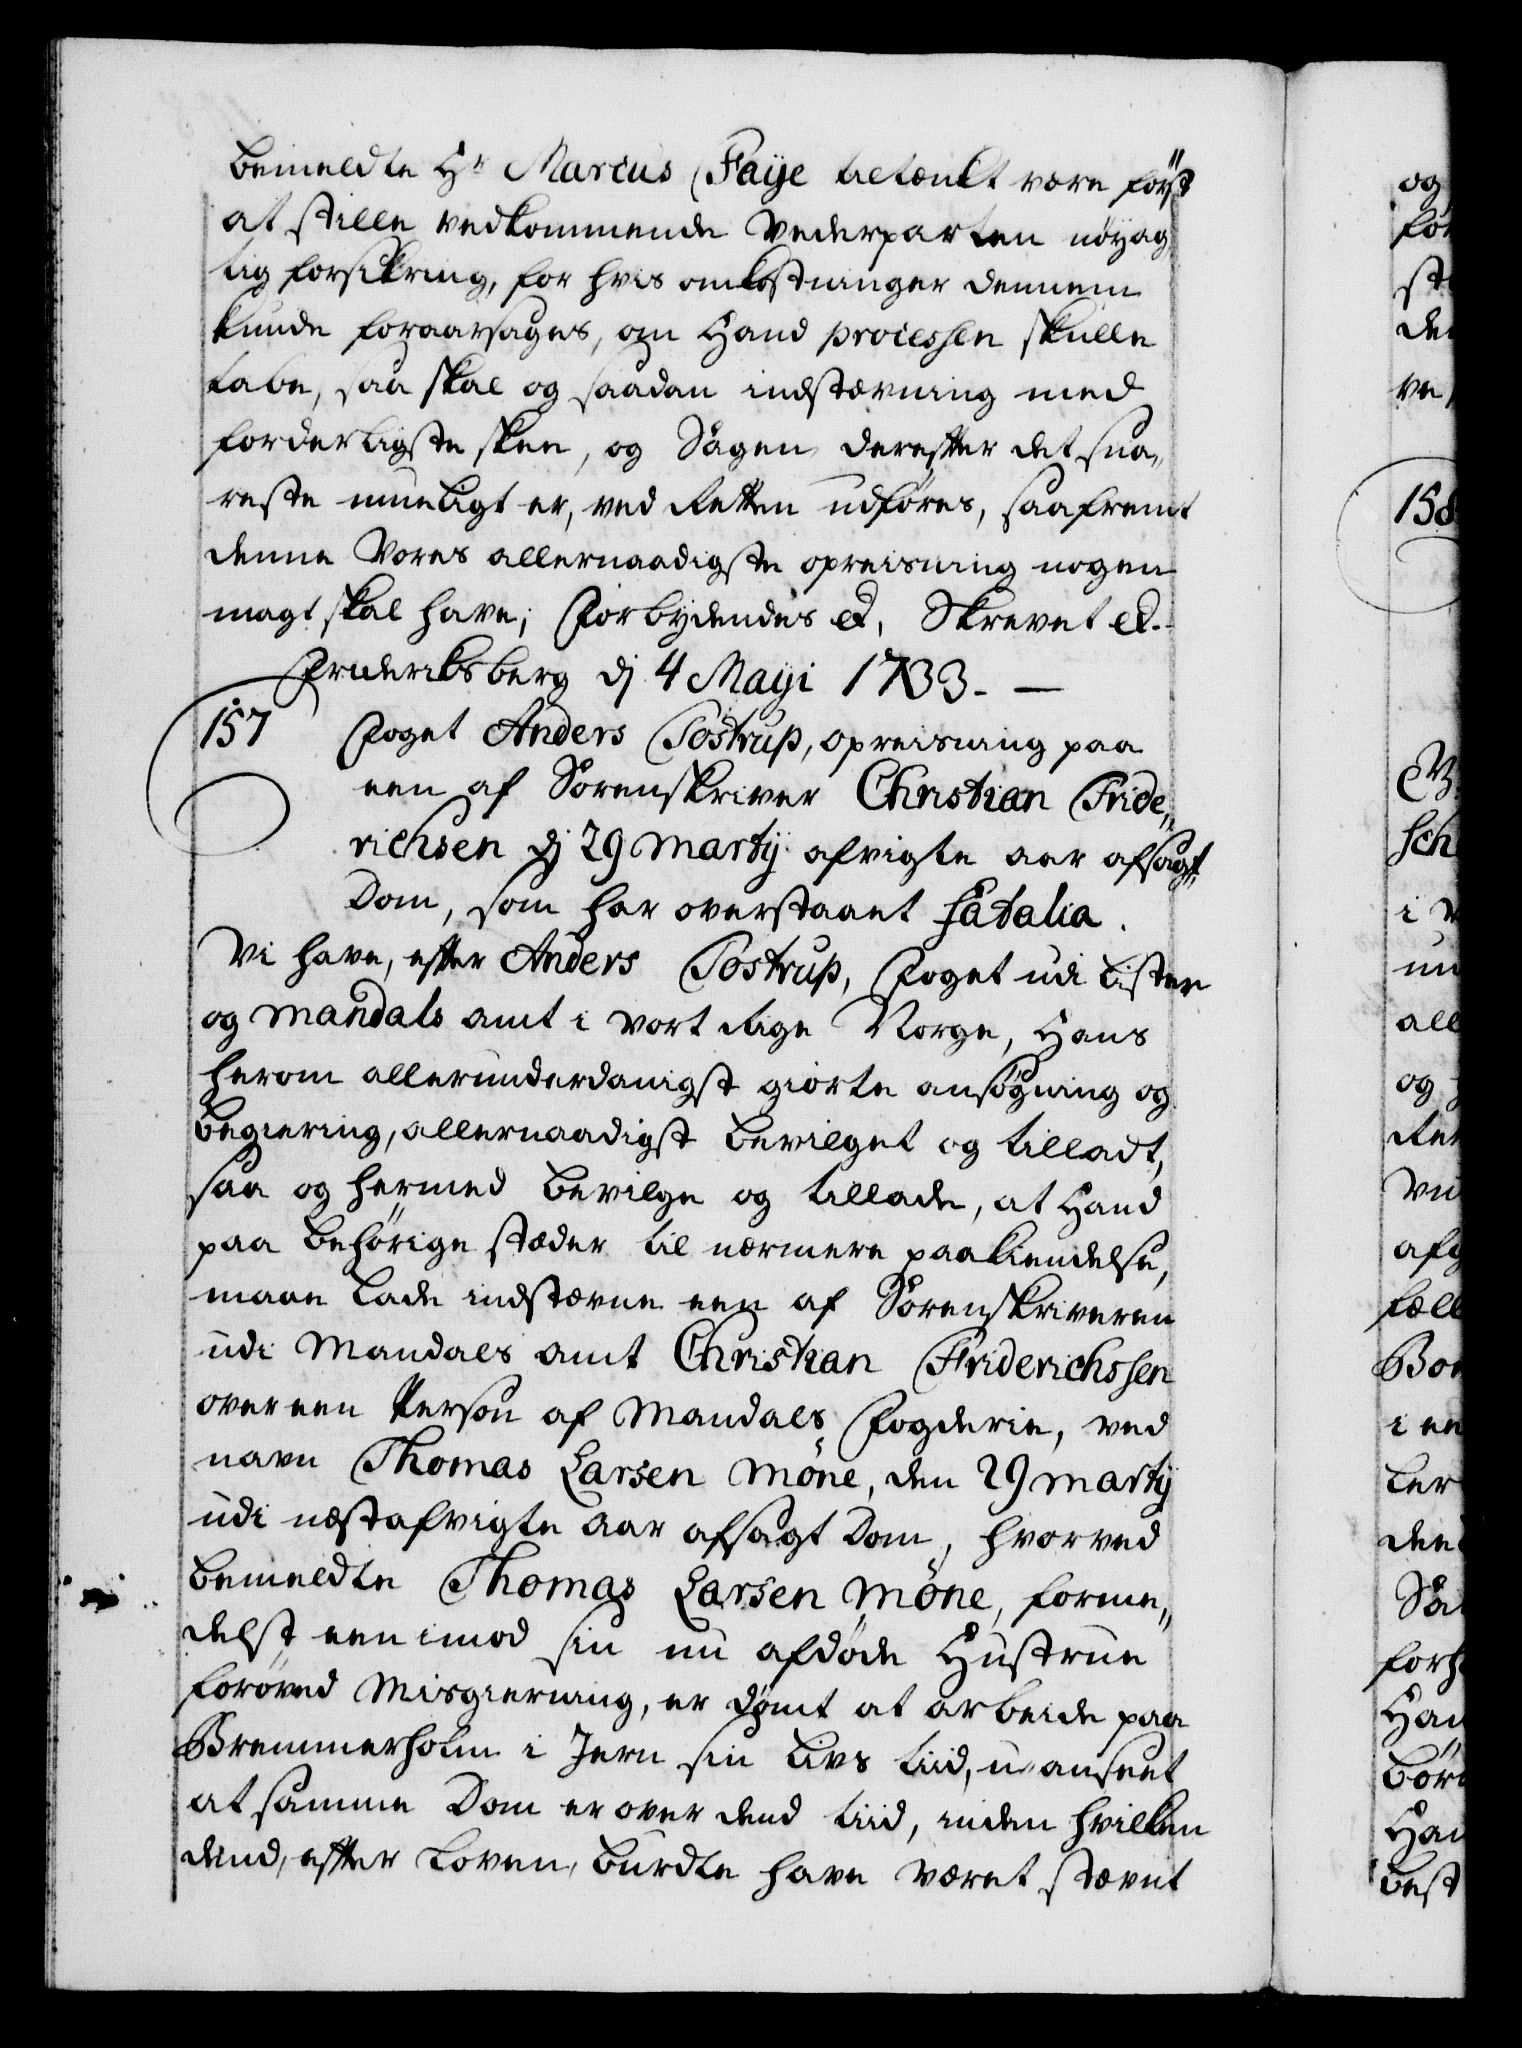 bemeldte Hr Marcus Faÿe betænkt være først
at stille vedkommende Vederparten nøyag
tig forsikring, for hvis omkostninger dennem
kunde foraarsages, om Hand processen skulle
tabe, saa skal og saadan indstævning med
forderligste skee, og Sagen derefter det sna„
reste mueligt er, ved Retten udføres, saafremt
denne Vores allernaadigste opreisning nogen
magt skal have; Forbydendes etc. Skrevet etc.
Frideriksberg dj 4 Maÿi 1733. —
157 Foget Anders Tostrup, opreisning paa
een af Sorenskriver Christian Fride„
richsen dj 29 martij afvigte aar afsagt
Dom, som har overstaaet fatalia.
Vi have, efter Anders Tostrup, Foget udi Lister
og Mandals amt i vort Rige Norge, Hans
herom allerunderdanigst giorte ansøgning og
begiering, allernaadigst bevilget og tilladt,
saa og hermed bevilge og tillade, at Hand
paa behørige stæder til nærmere paakiendelse,
maae lade indstævne een af Sorenskriveren
udi Mandals amt Christian Friderichssen
over een Person af Mandals Fogderie, ved
navn Thomas Larsen Møne, den 29 martij
udi næstafvigte aar afsagt Dom, hvorved
bemeldte Thomas Larsen Møne, forme„
delst een imod sin nu afdøde Hustrue
forøved Misgierning, er dømt at arbeide paa
Bremmerholm i Jern sin Livs tiid, uanseet
at samme Dom er over dend tiid, inden hvilken
dend, efter Loven, burdte have været stævnt
og
158